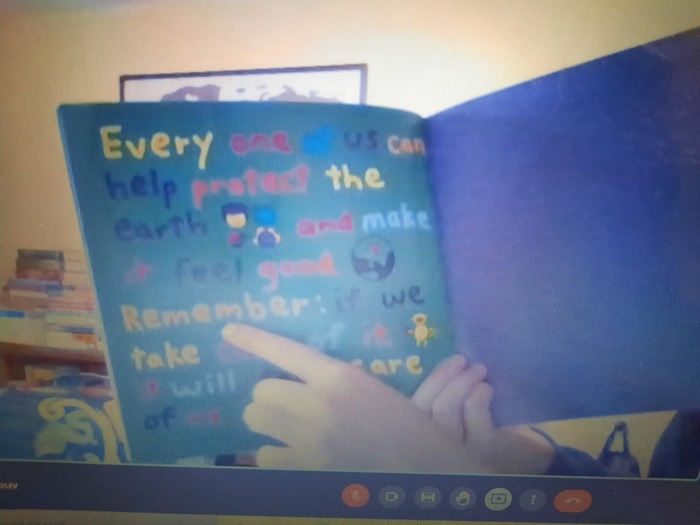 Every one of us can
help protect the
earth and make
it feel good
Remember: if we
take of it
care
it will
of us